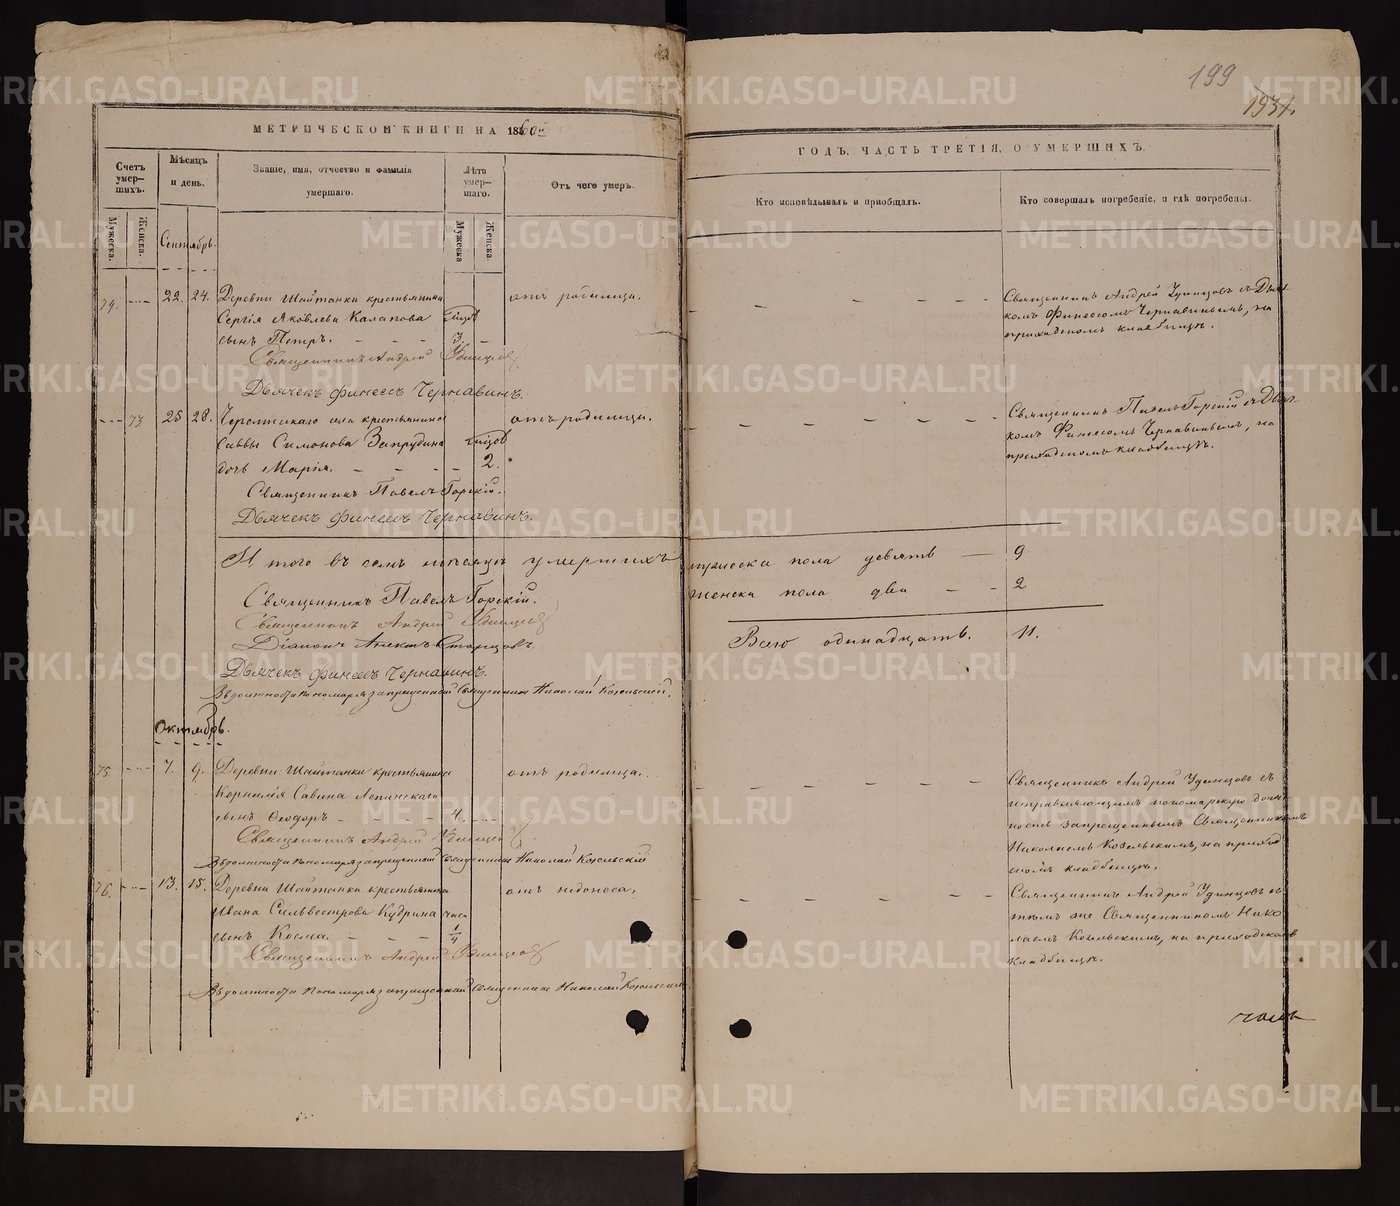 199
193 г.
МЕТРИЧЕСКОЙ КНИГИ НА 1860й
ГОДЪ, ЧАСТЬ ТРЕТІЯ, О УМЕРШИХЪ.
Счетъ умер-шихъ.
Мѣсяцъ и день.
Званіе, имя, отчество и фамилія умершаго.
Лѣта умер-шаго.
Отъ чего умеръ.
Кто исповѣдывалъ и пріобщалъ.
Кто совершалъ погребеніе, и гдѣ погребены.
Мужеска.
Женска.
Мужеска
Женска.
Сентябрь.
74. 22. 24. Деревни Шайтанки крестьянина
Сергія Яковлева Калапова
сынъ Петръ. 3.
отъ родимца.
Священникъ Андрей Удинцовъ съ Дьяч
комъ Финеесомъ Чернавинымъ, на
приходскомъ кладбищѣ.
Священникъ Андрей Удинцовъ
Дьячекъ Финеесъ Чернавинъ.
73 25 28. крестьянина
Саввы Симонова Запрудина
дочь Марія. 2.
отъ родимца.
Священникъ Павелъ Горскій съ Дьяч
комъ Финеесомъ Чернавинымъ, на
приходскомъ кладбищѣ.
Священникъ Павелъ Горскій.
Дьячекъ Финеесъ Чернавинъ.
И того въ семъ мѣсяцѣ умершихъ мужеска пола девять — 9
женска пола два — 2
Всего одинадцать. 11.
Священникъ Павелъ Горскій.
Священникъ Андрей Удинцовъ
Діаконъ Старцовъ.
Дьячекъ Финеесъ Чернавинъ.
Въ должности пономаря запрещенный Священникъ Николай Козельскій.
Октябрь.
75 7. 9. Деревни Шайтанки крестьянина
Корнилія Савина Лепинскаго
сынъ Ѳеодоръ 4.
отъ родимца.
Священникъ Андрей Удинцовъ съ
исправляющимъ пономарскую долж
ность запрещеннымъ Священникомъ
Николаемъ Козельскимъ, на приход
скомъ кладбищѣ.
Священникъ Андрей Удинцовъ
Въ должности пономаря запрещенный Священникъ Николай Козельскій
76. 13. 15. Деревни Шайтанки крестьянина
Ивана Сильвестрова Кудрина часа
сынъ Косма. 1/4
отъ недоноса.
Священникъ Андрей Удинцовъ съ
тѣмъ же Священникомъ Нико
лаемъ Козельскимъ, на приходскомъ
кладбищѣ.
Священникъ Андрей Удинцовъ
Въ должности Пономаря запрещенный Священникъ Николай Козельскій
METRIKI.GASO-URAL.RU